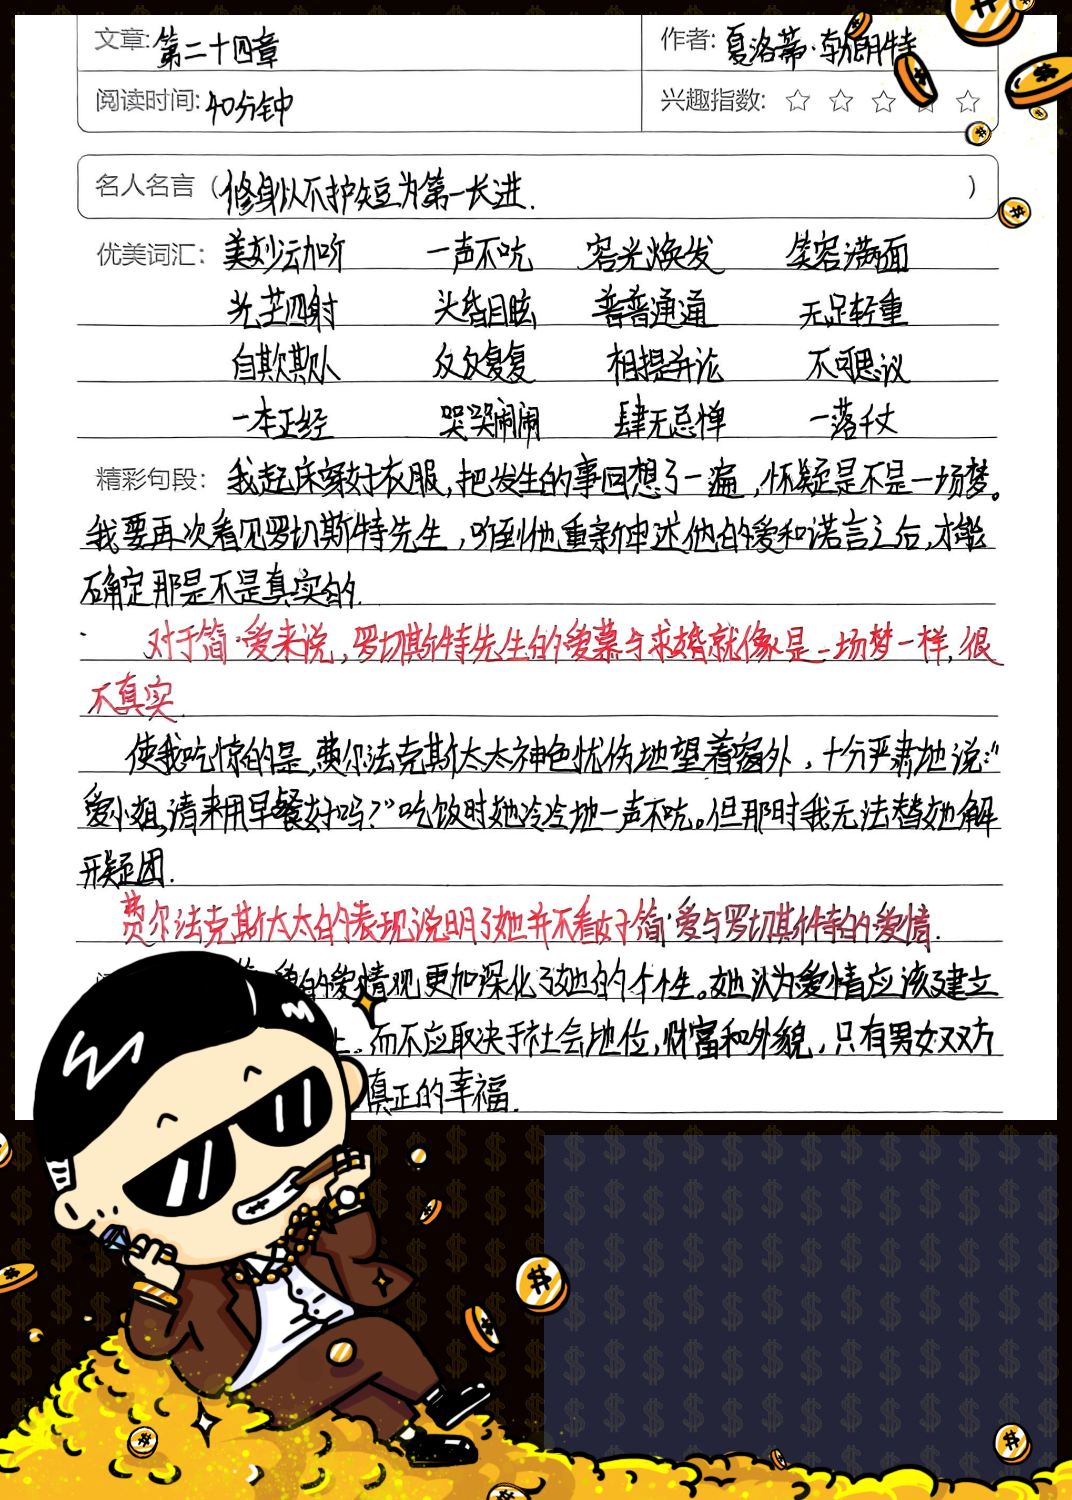 文章:第二十四章 作者:夏洛蒂·勃朗特
阅读时间:40分钟 兴趣指数:☆ ☆ ☆ ☆ ☆
名人名言(修身以不护短为第一长进. )
优美词汇: 美妙 一声不吭 容光焕发 笑容满面
光芒四射 头昏目眩 普普通通 无足轻重
自欺欺人 反反复复 相提并论 不可思议
一本正经 哭哭闹闹 肆无忌惮 一落千丈
精彩句段: 我起床穿好衣服,把发生的事回想了一遍,怀疑是不是一场梦。
我要再次看见罗切斯特先生,听到他重新申述他的爱和诺言之后,才能
确定那是不是真实的.
对于简·爱来说,罗切斯特先生的爱慕与求婚就像是一场梦一样,很
不真实.
使我吃惊的是,费尔法克斯太太神色忧伤地望着窗外,十分严肃地说:“
爱小姐,请来用早餐好吗?”吃饭时她冷冷地一声不吭。但那时我无法替她解
开疑团.
费尔法克斯太太的表现说明了她并不看好简·爱与罗切斯特的爱情.
的爱情观更加深化了她的个性。她认为爱情应该建立
上.而不应取决于社会地位,财富和外貌,只有男女双方
真正的幸福.